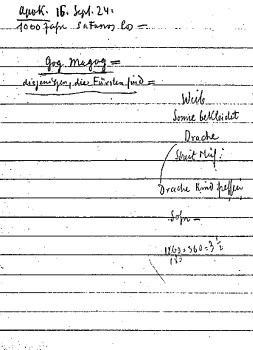 Apok. 16. Sept. 24:
1000 Jahr Satanas los =
Gog. Magog =
diejenigen, die Fürsten sind =
Weib
Sonne bekleidet
Drache
Streit Mich:
Drache Kind fressen
Sohn -
1260 : 360 = 3 1/2
180